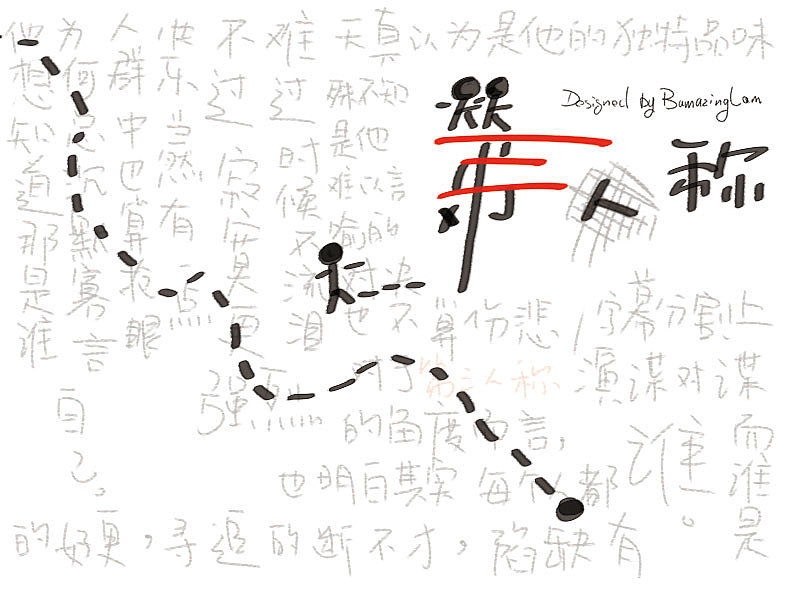 他想知道那是谁
为何总沉默寡言
人群中也算抢眼
快乐当然有一点
不过寂寞更强烈
难过时候不流泪
也不算伤悲
天真认为是他的独特品味
殊不知
是他
难以言
喻的
对决
Designed by BamazingLam
第三人称
字幕分割上
演谋对谋
而谁是
谁。
对于第三人称
的角度而言,
也明白其实每个人都
有缺陷,才不断的追寻,更好的
自己。